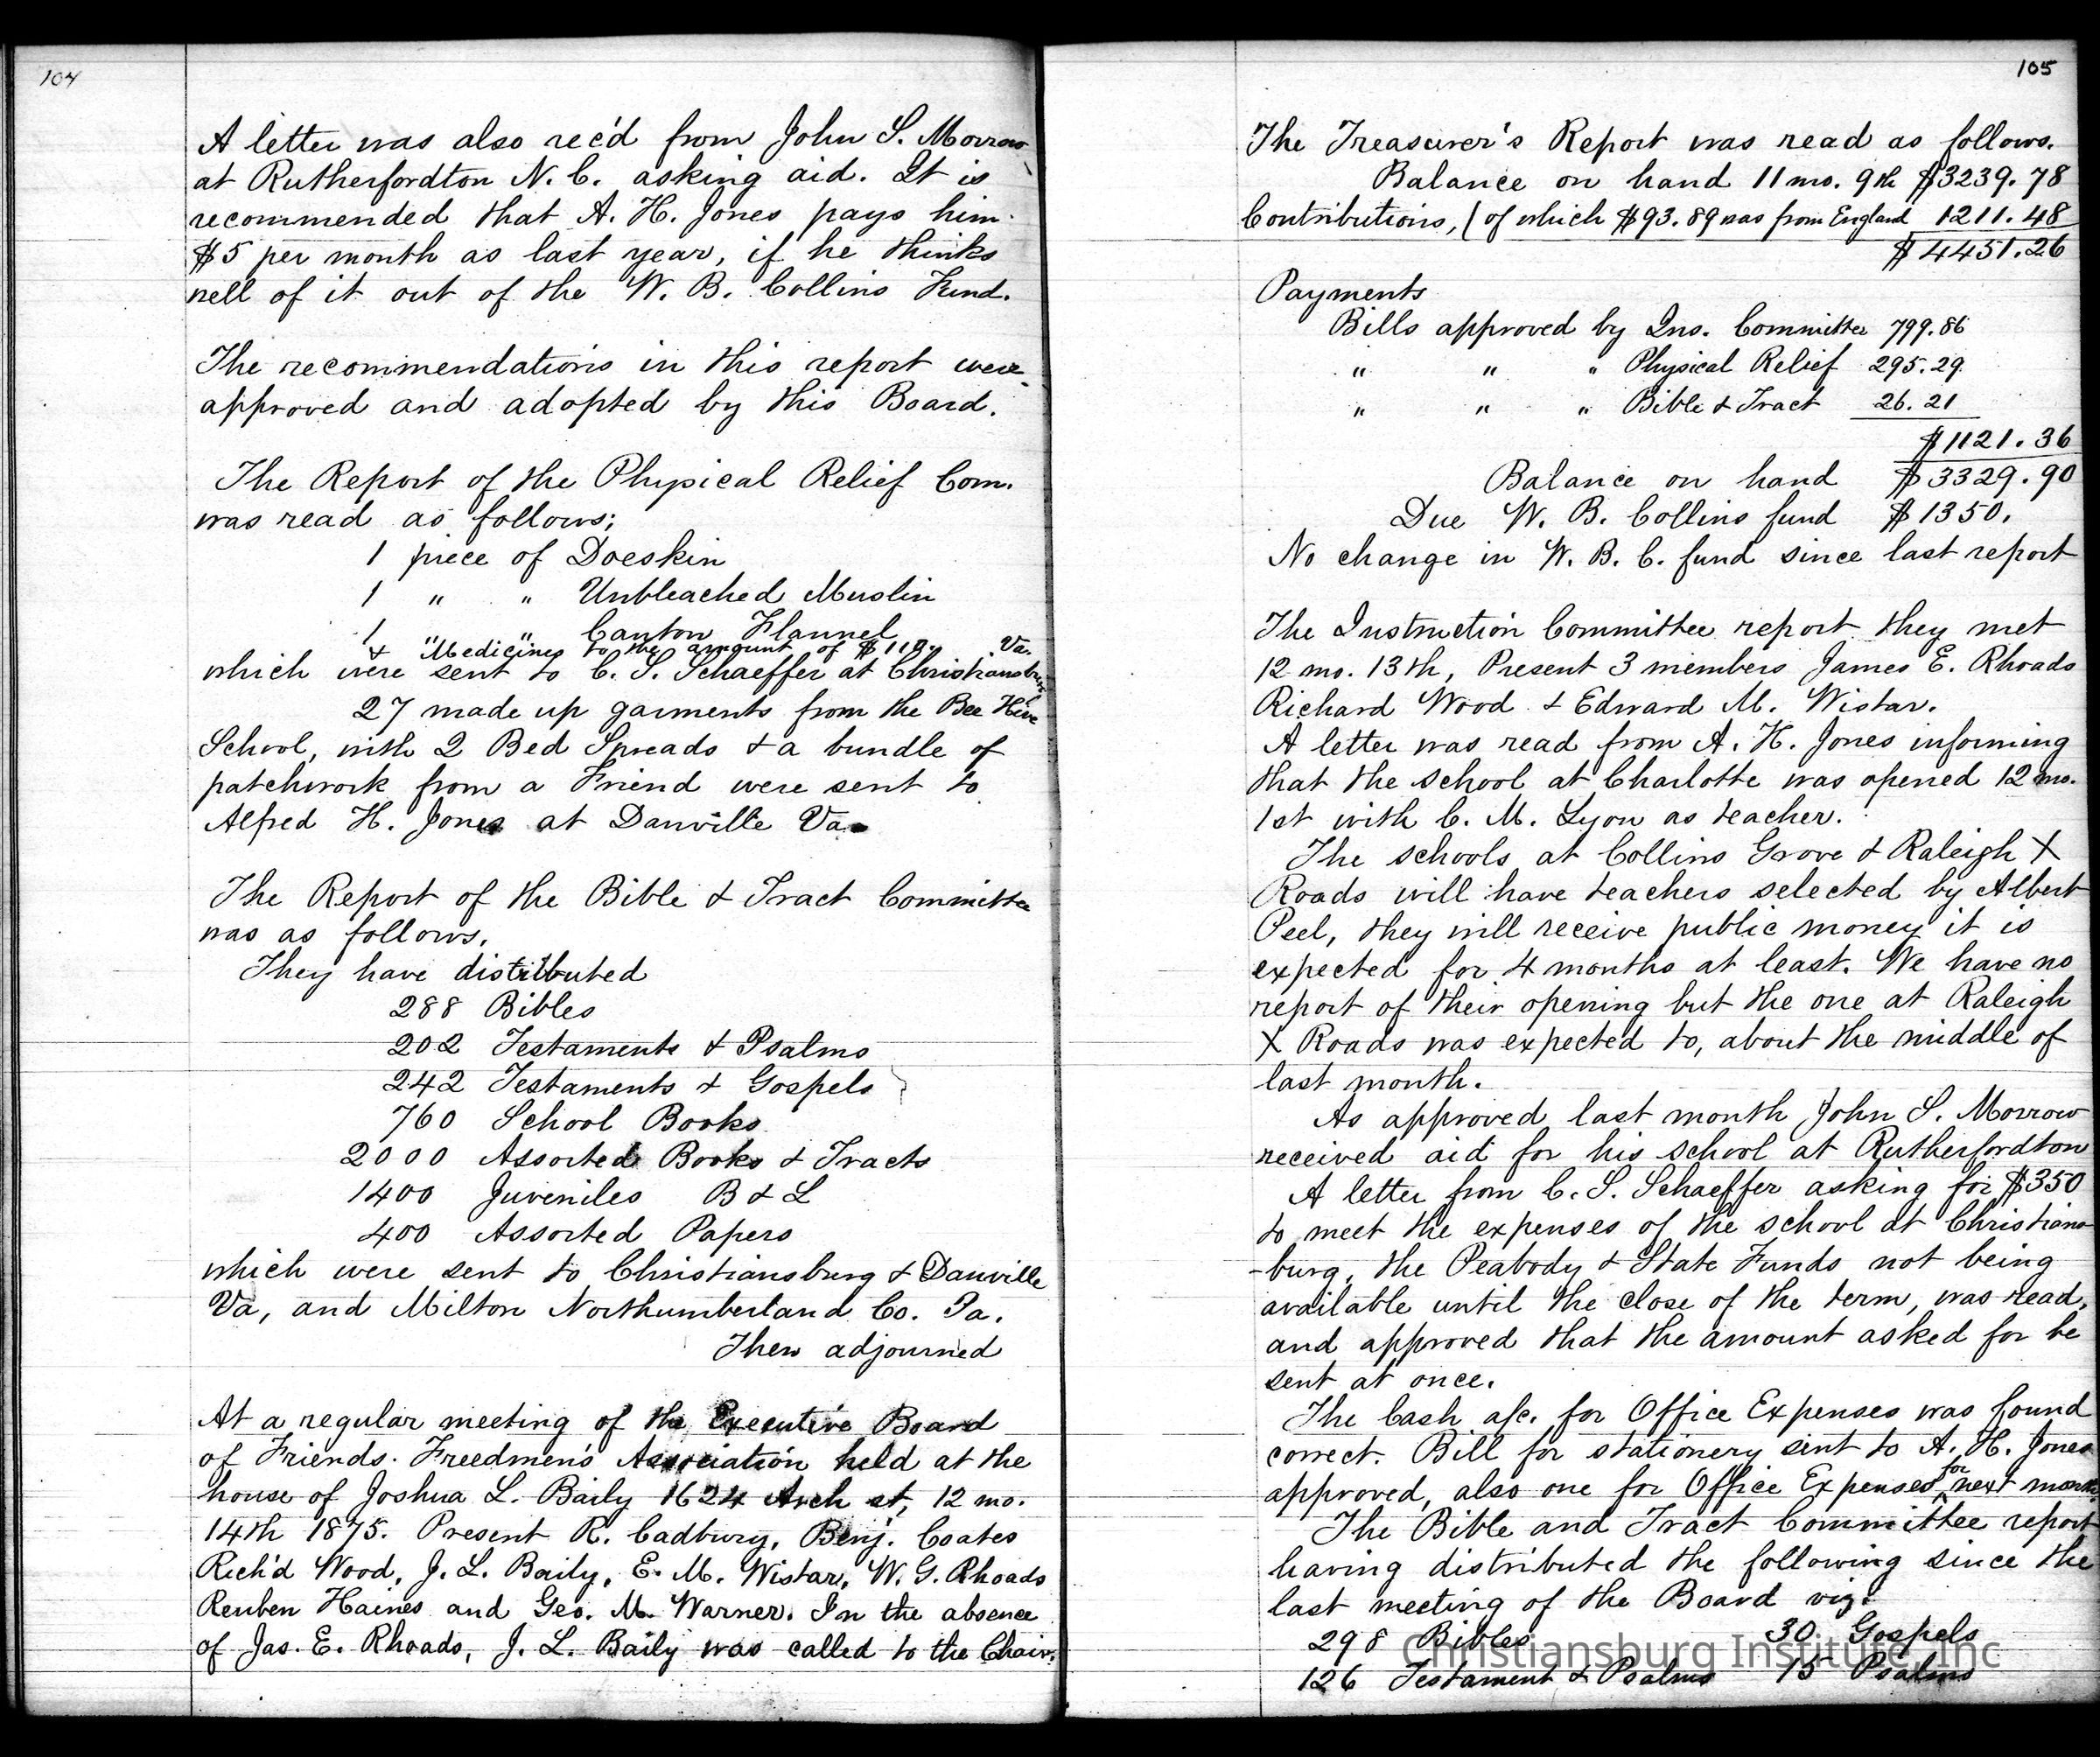 104
A letter was also rec'd from John S. Morrow
at Rutherfordton N. C. asking aid. It is
recommended that A. H. Jones pays him
$5 per month as last year, if he thinks
well of it out of the W. B. Collins Fund.
The recommendations in this report were
approved and adopted by this Board.
The Report of the Physical Relief Com.
was read as follows;
1 piece of Doeskin
1 " " Unbleached Muslin
1 " " Canton Flannel
& Medicines to the amount of $110. Va.
which were sent to C. S. Schaeffer at Christiansburg
27 made up garments from the Bee Hive
School, with 2 Bed Spreads & a bundle of
patchwork from a Friend were sent to
Alfred H. Jones at Danville Va
The Report of the Bible & Tract Committee
was as follows.
They have distributed
288 Bibles
202 Testaments & Psalms
242 Testaments & Gospels
760 School Books
2000 Assorted Books & Tracts
1400 Juveniles B & L
400 Assorted Papers
which were sent to Christiansburg & Danville
Va, and Milton Northumberland Co. Pa.
Then adjourned
At a regular meeting of the Executive Board
of Friends Freedmen's Association held at the
house of Joshua L. Baily 1624 Arch st, 12 mo.
14th 1875. Present R. Cadbury, Benj. Coates
Rich'd Wood, J. L. Baily, E. M. Wistar, W. G. Rhoads
Reuben Haines and Geo. M. Warner. In the absence
of Jas. E. Rhoads, J. L. Baily was called to the Chair.
105
The Treasurer's Report was read as follows.
Balance on hand 11 mo. 9th $3239.78
Contributions, (of which $93.89 was from England 1211.48
$4451.26
Payments
Bills approved by Ins. Committee 799.86
" " " Physical Relief 295.29
" " " Bible & Tract 26.21
$1121.36
Balance on hand $3329.90
Due W. B. Collins fund $1350.
No change in W. B. C. fund since last report
The Instruction Committee report they met
12 mo. 13th, Present 3 members James E. Rhoads
Richard Wood & Edward M. Wistar.
A letter was read from A. H. Jones informing
that the school at Charlotte was opened 12 mo.
1st with C. M. Lyon as teacher.
The schools at Collins Grove & Raleigh X
Roads will have teachers selected by Albert
Peel, they will receive public money it is
expected for 4 months at least. We have no
report of their opening but the one at Raleigh
X Roads was expected to, about the middle of
last month.
As approved last month John S. Morrow
received aid for his school at Rutherfordton
A letter from C. S. Schaeffer asking for $350
to meet the expenses of the school at Christians
-burg, the Peabody & State Funds not being
available until the close of the term, was read,
and approved that the amount asked for be
sent at once.
The Cash a/c. for Office Expenses was found
correct. Bill for stationery sent to A. H. Jones
approved, also one for Office Expenses for next month
The Bible and Tract Committee report
having distributed the following since the
last meeting of the Board viz.
298 Bibles 30 Gospels
126 Testament & Psalms 15 Psalms
Christiansburg Institute, Inc